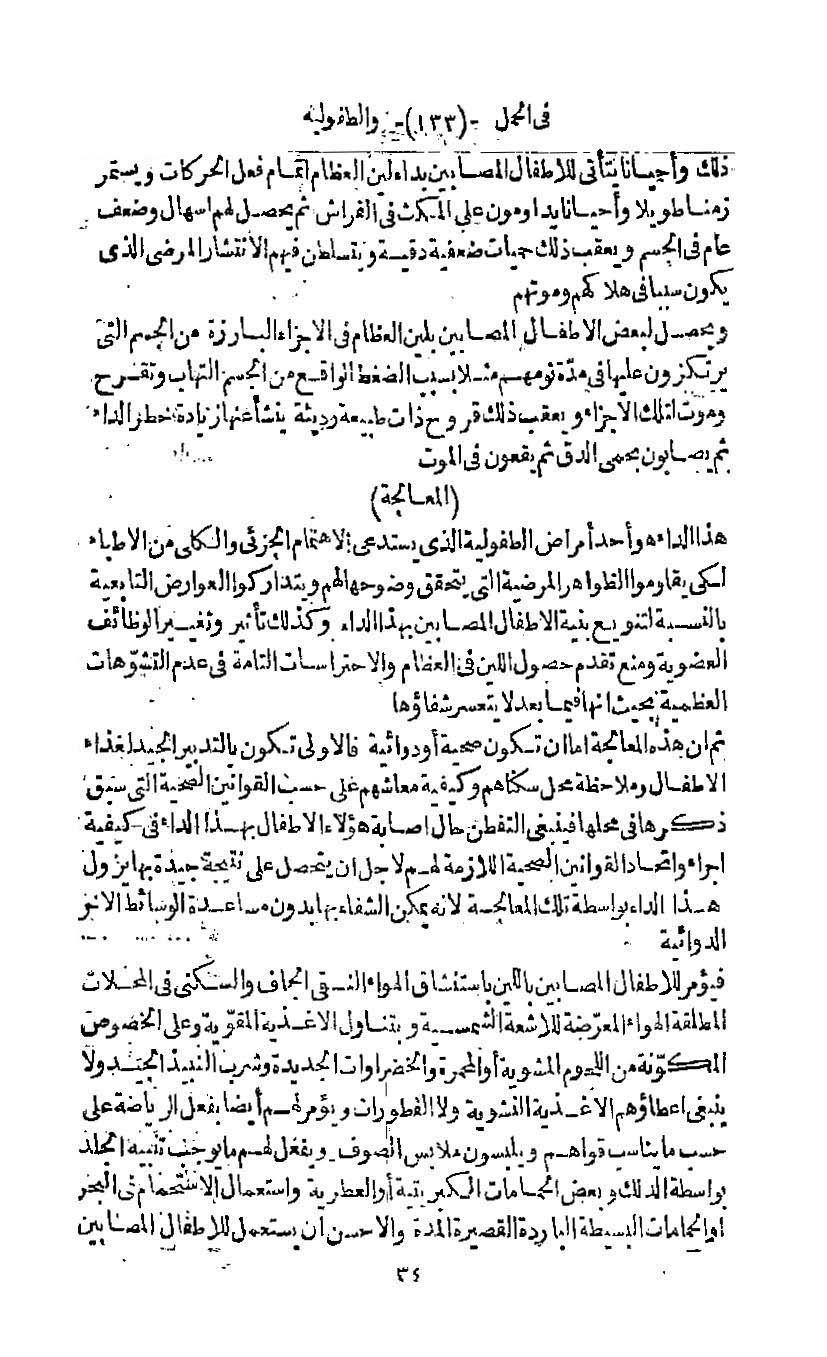 فى الحمل -(١٣٣)- والطفوليه
ذلك وأحيانا يتأتى للاطفال المصابين بداء لين العظام اتمام فعل الحركات ويستمر
زمنا طويلا وأحيانا يداومون على المكث فى الفراش ثم يحصل لهم اسهال وضعف
عام فى الجسم ويعقب ذلك حميات ضعفية دقيسة ويتسلطن فيهم الانتشار المرضى الذى
يكون سببا فى هلاكهم وموتهم
ويحصل لبعض الاطفال المصابين بلين العظام فى الاجزاء البارزة من الجسم التى
يرتكزون عليها فى مدّة نومهم مثلا بسبب الضغط الواقع من الجسم التهاب وتقرح
وموت لتلك الاجزاء ويعقب ذلك قروح ذات طبيعة رديئة ينشأ عنها زيادة خطر الداء
ثم يصابون بحمى الدق ثم يقعون فى الموت
(المعالجة)
هذا الداء هو أحد أمراض الطفولية الذى يستدعى الاهتمام الجزئى والكلى من الاطباء
لكى يقاوموا الظواهر المرضية التى يتحقق وضوحها لهم ويتداركوا العوارض التابعية
بالنسبة لتنويع بنية الاطفال المصابين بهذا الداء وكذلك تأثير وتغيير الوظائف
العضوية ومنع تقدم حصول اللين فى العظام والاحتراسات التامة فى عدم التشوّهات
العظمية بحيث انها فيما بعد لا يتعسر شفاؤها
ثم ان هذه المعالجة اما ان تكون صحية أو دوائية فالاولى تكون بالتدبير الجيد لغذاء
الاطفال وملاحظة محل سكناهم وكيفية معاشهم على حسب القوانين الصحية التى سبق
ذكرها فى محلها فينبغى التفطن حال اصابة هؤلاء الاطفال بهذا الداء فى كيفية
اجراء واتحاد القوانين الصحية اللازمة لهم لاجل ان يتحصل على نتيجة جيدة بها يزول
هذا الداء بواسطة تلك المعالجة لانه يمكن الشفاء بها بدون مساعدة الوسائط الاخر
الدوائية
فيؤمر للاطفال المصابين باللين باستنشاق الهواء النقى الجاف والسكنى فى المحلات
المطلقة الهواء المعرّضة للاشعة الشمسية وبتناول الاغذية المقوّية وعلى الخصوص
المكوّنة من اللحوم المشوية أو المحمرة والخضراوات الجديدة وشرب النبيذ الجيد ولا
ينبغى اعطاؤهم الاغذية النشوية ولا الفطورات ويؤمر لهم أيضا بفعل الرياضة على
حسب ما يناسب قواهم ويلبسون ملابس الصوف ويفعل لهم ما يوجب تنبيه الجلد
بواسطة الدلك وبعض الحمامات الكبريتية أو العطرية واستعمال الاستحمام فى البحر
أو الحمامات البسيطة الباردة القصيرة المدة والاحسن ان يستعمل للاطفال المصابين
٣٤